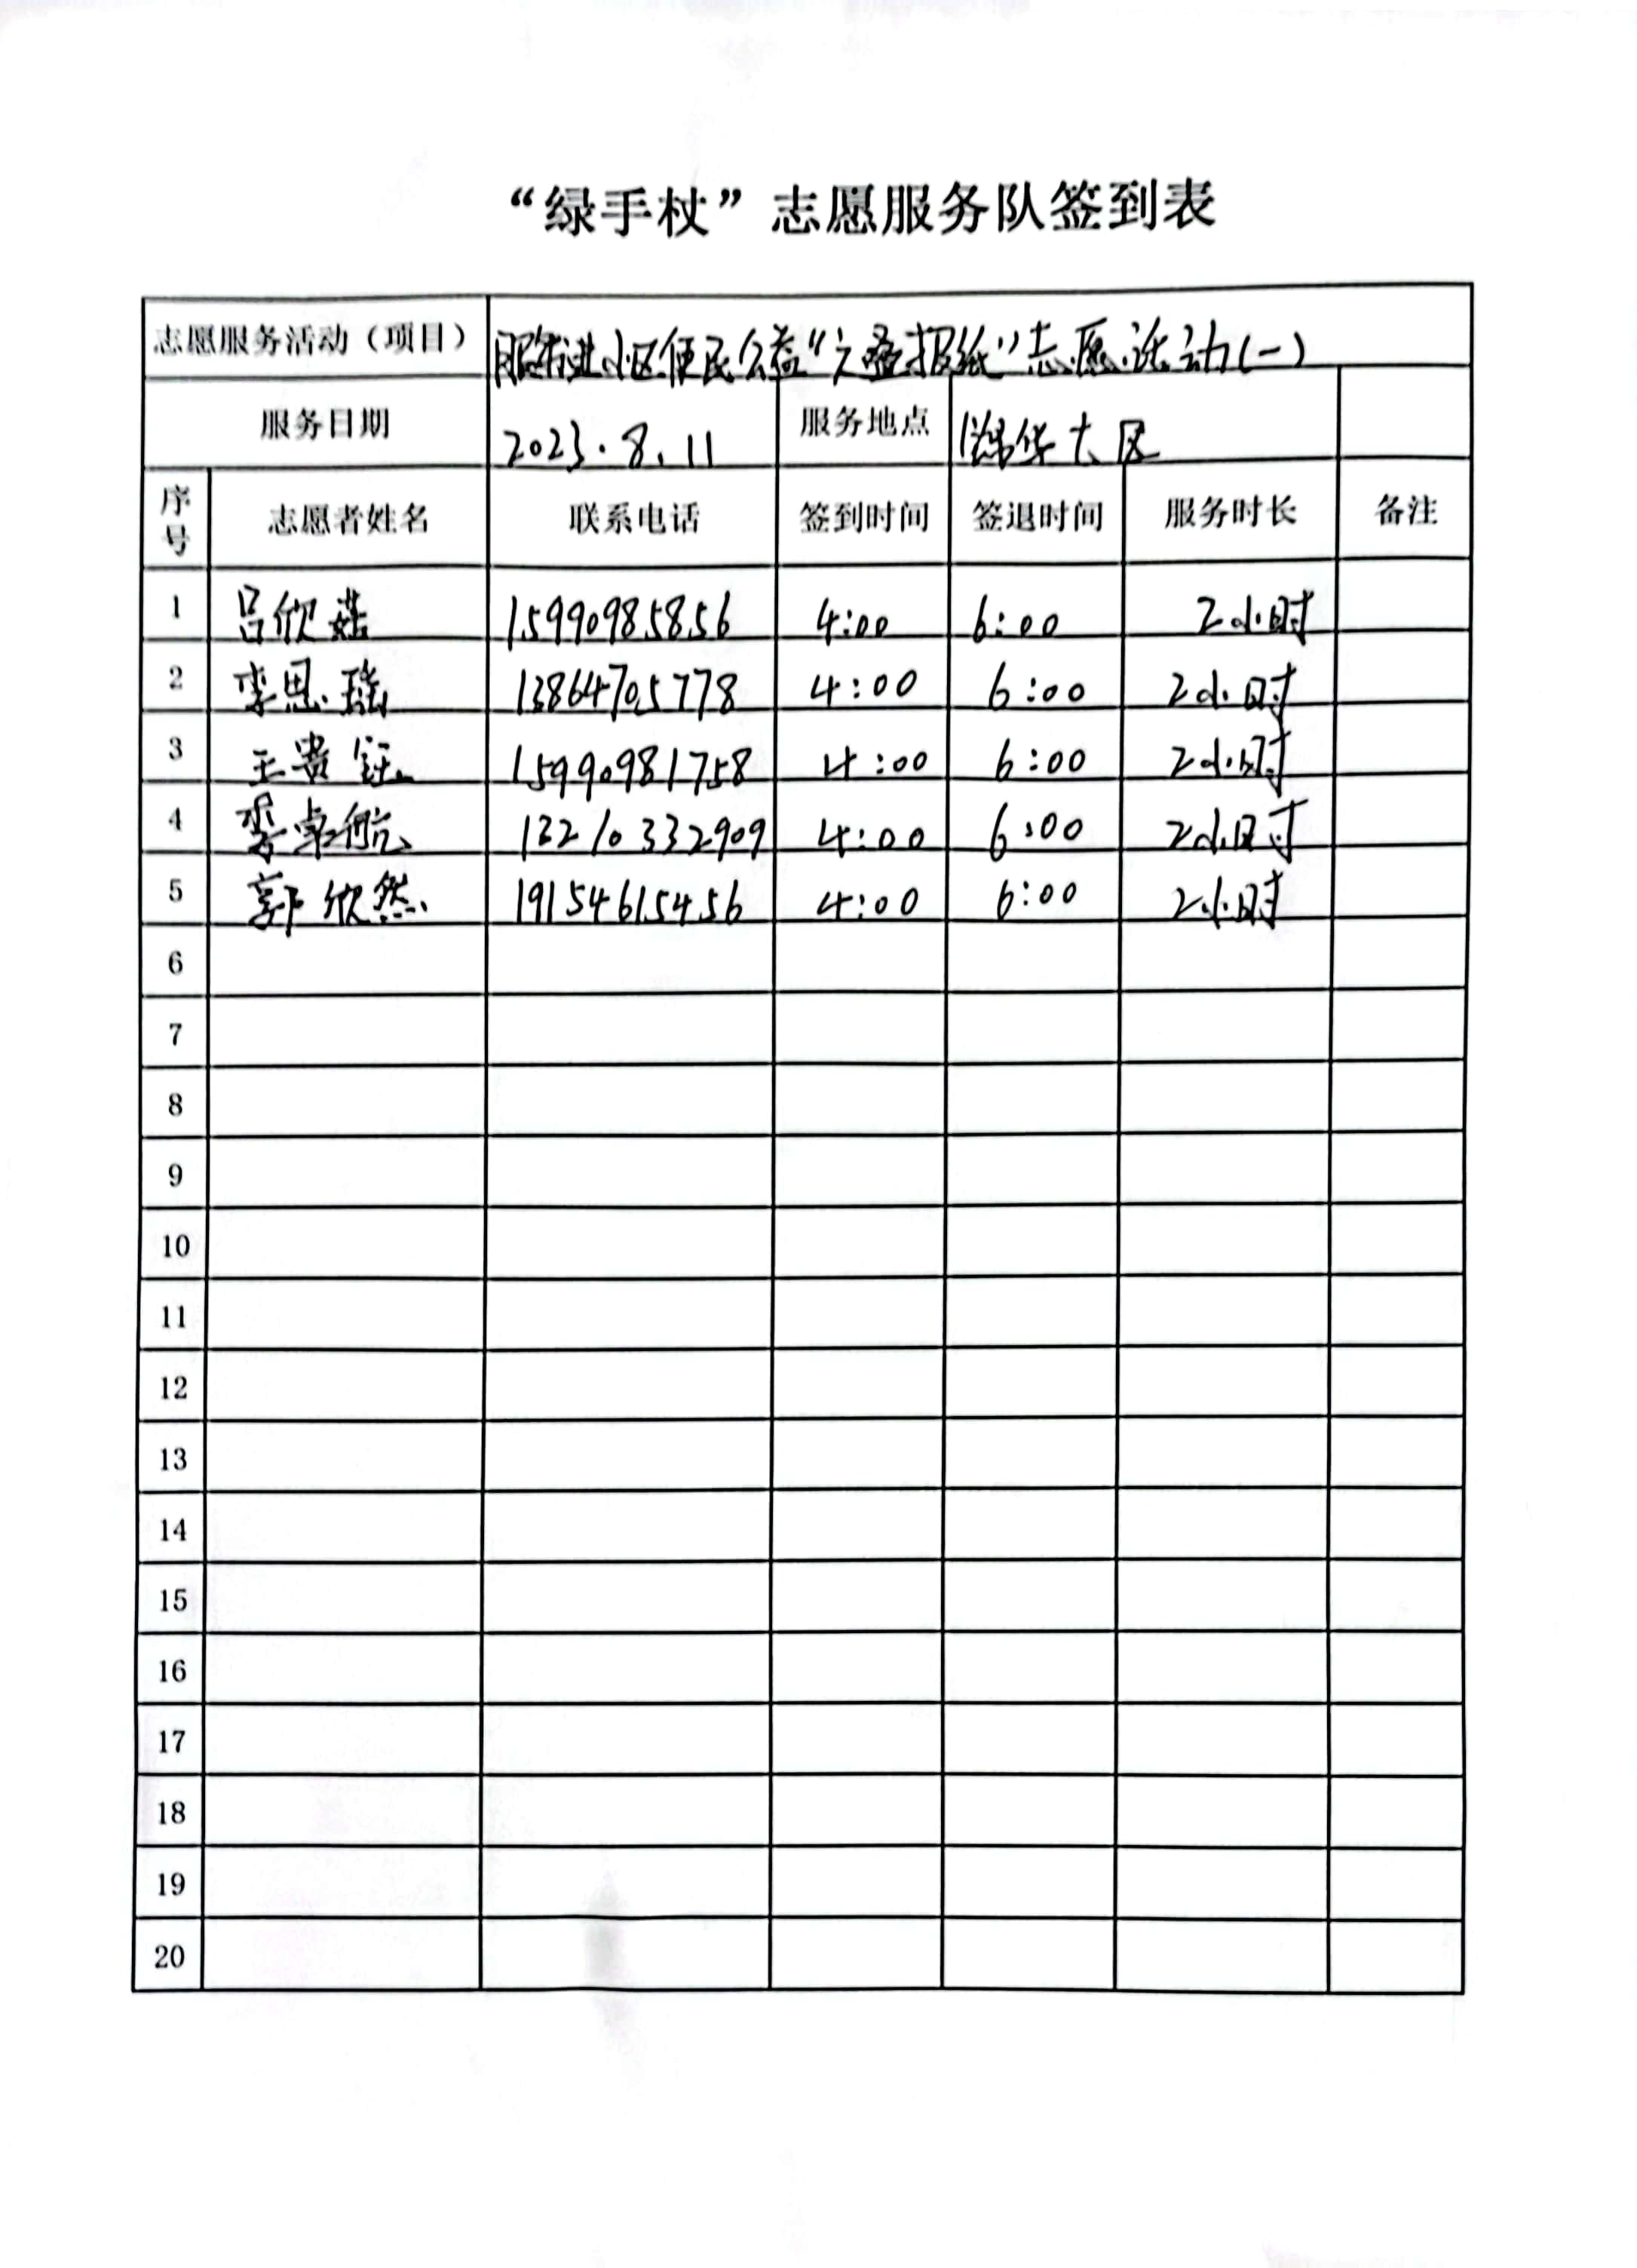 “绿手杖”志愿服务队签到表
志愿服务活动（项目） 服务进小区便民公益“之叠报纸”志愿活动(一)
服务日期 2023.8.11 服务地点 锦华大区
序号 志愿者姓名 联系电话 签到时间 签退时间 服务时长 备注
1 吕欣 15990985856 4:00 6:00 2小时
2 李思瑶 13864705778 4:00 6:00 2小时
3 王贵钰 15990981758 4:00 6:00 2小时
4 李卓航 13210332909 4:00 6:00 2小时
5 郭欣然 19154615456 4:00 6:00 2小时
6
7
8
9
10
11
12
13
14
15
16
17
18
19
20